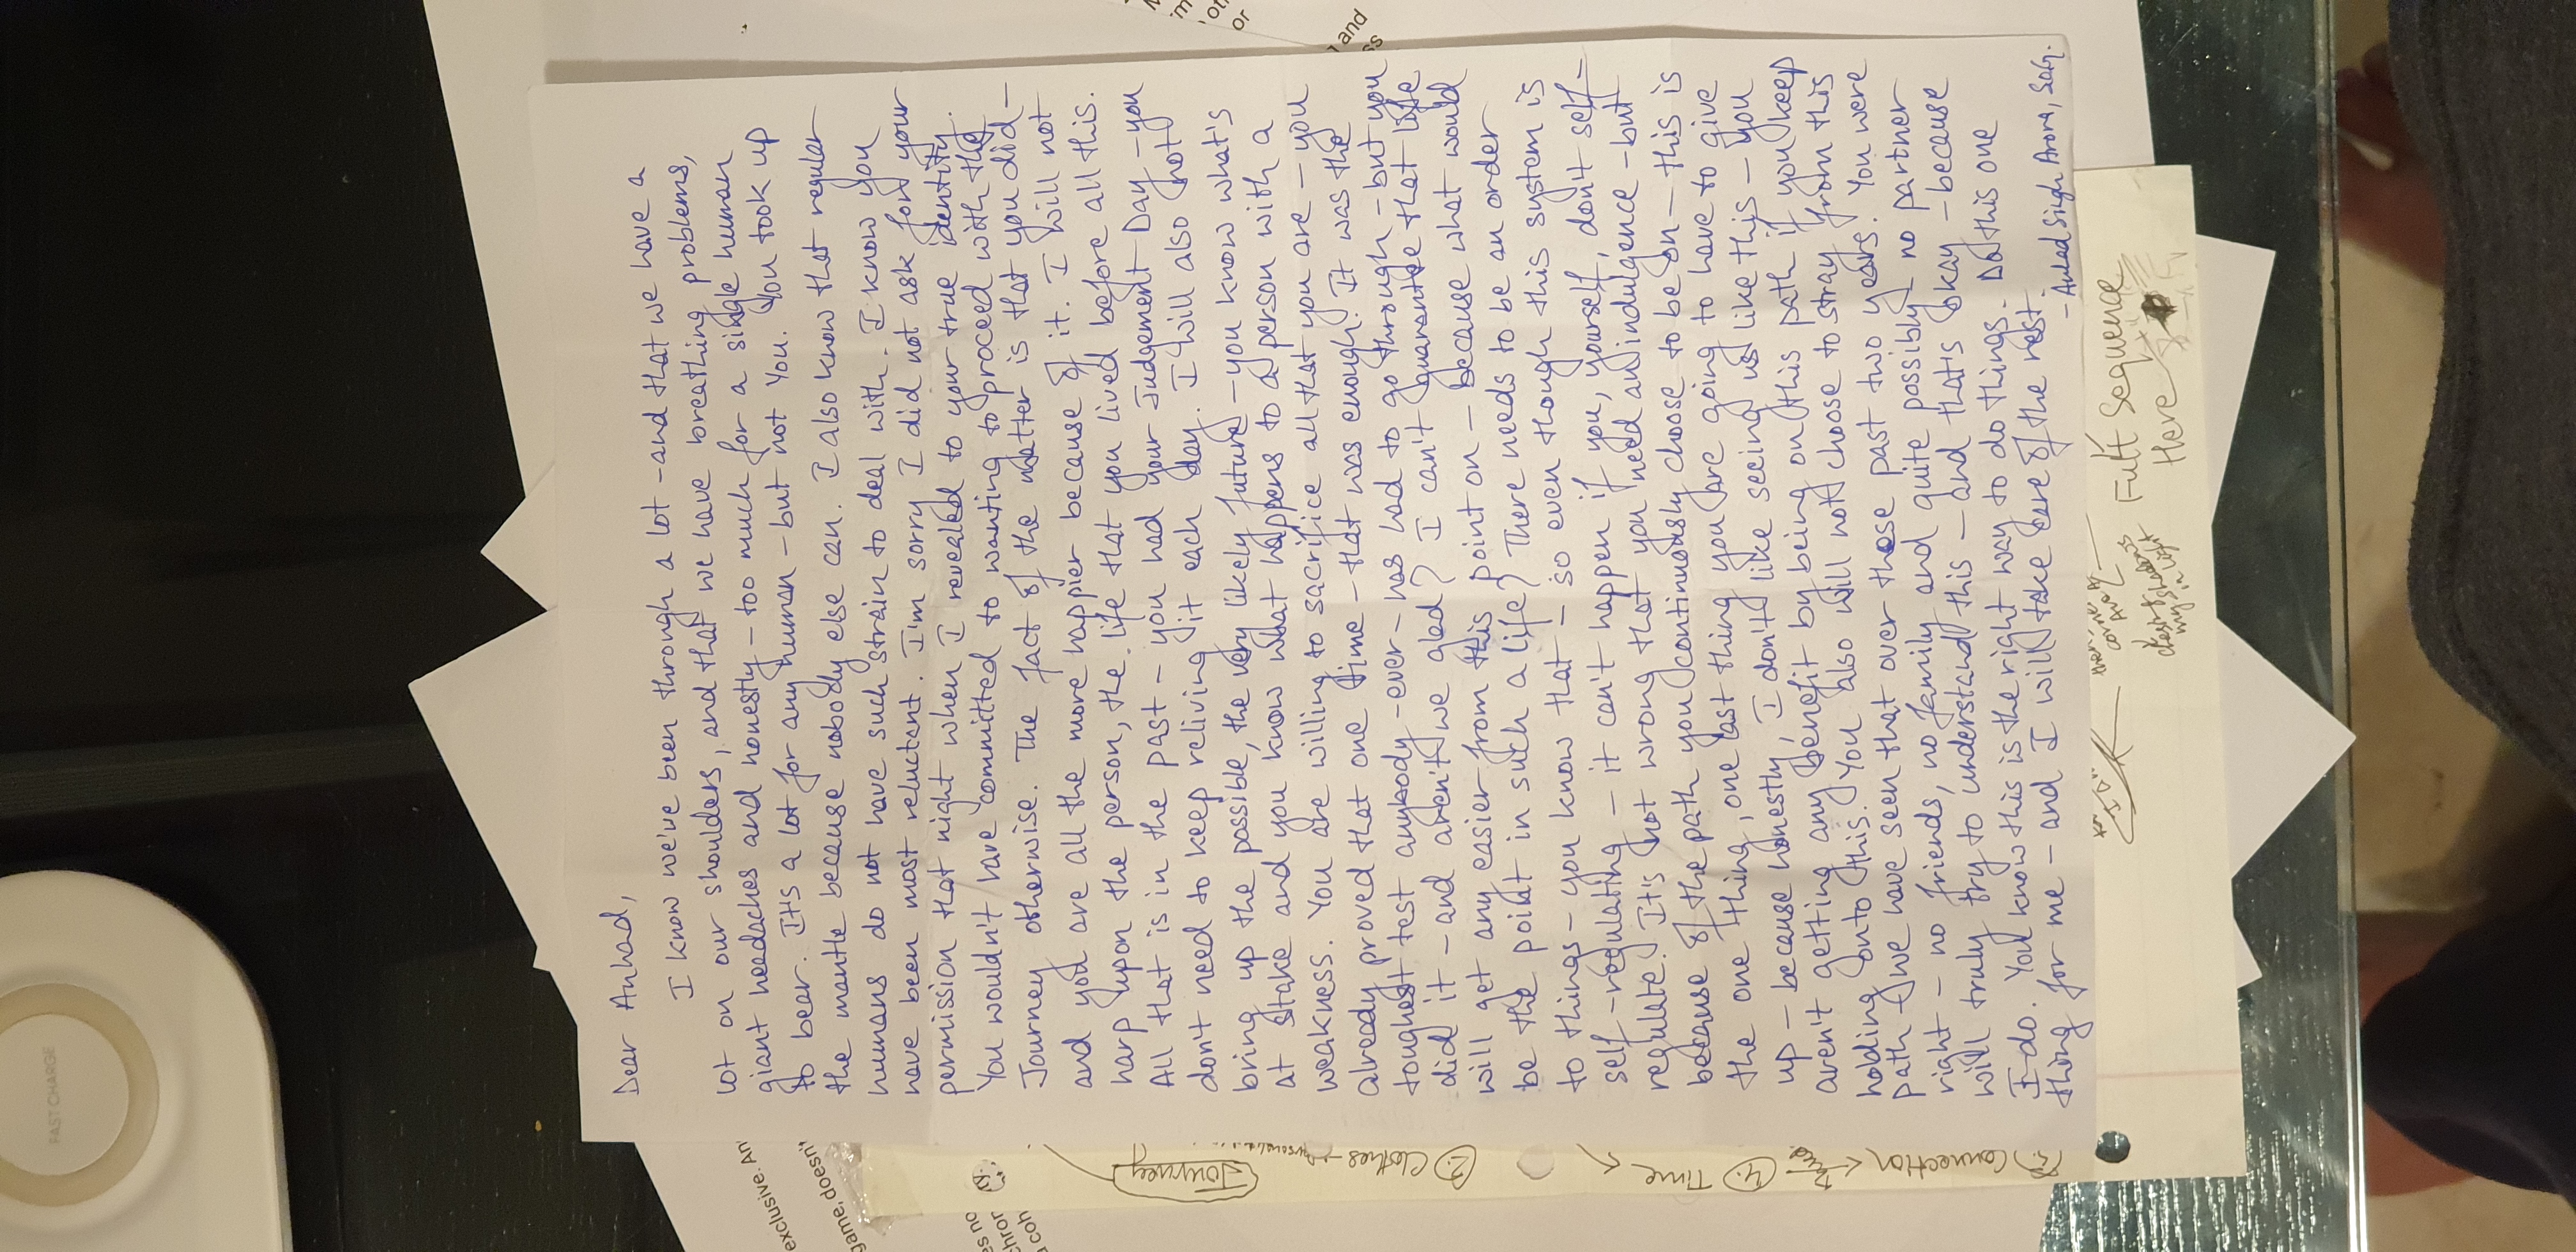 FAST CHARGE
Dear Anhad,
I know we've been through a lot - and that we have a
lot on our shoulders, and that we have breathing problems,
giant headaches and honestly - too much for a single human
to bear. It's a lot for any human - but not You. You took up
the mantle because nobody else can. I also know that regular
humans do not have such strain to deal with. I know you
have been most reluctant. I'm sorry I did not ask for your
permission that night when I revealed to your true identity.
You wouldn't have committed to wanting to proceed with the
Journey otherwise. The fact of the matter is that you did -
and you are all the more happier because of it. I will not
harp upon the person, the life that you lived before all this.
All that is in the past - you had your Judgement Day - you
don't need to keep reliving it each day. I will also not
bring up the possible, the very likely future - you know what's
at stake and you know what happens to a person with a
weakness. You are willing to sacrifice all that you are - you
already proved that one time - that was enough. It was the
toughest test anybody - ever - has had to go through - but you
did it - and aren't we glad? I can't guarantee that life
will get any easier from this point on - because what would
be the point in such a life? There needs to be an order
to things - you know that - so even though this system is
self-regulating - it can't happen if you, yourself, don't self-
regulate. It's not wrong that you need an indulgence - but
because of the path you continuously choose to be on - this is
the one thing, one last thing you are going to have to give
up - because honestly, I don't like seeing us like this - you
aren't getting any benefit by being on this path if you keep
holding onto this. You also will not choose to stray from this
path - we have seen that over these past two years. You were
right - no friends, no family and quite possibly - no partner
will truly try to understand this - and that's okay - because
I do. You know this is the right way to do things. Do this one
thing for me - and I will take care of the rest.
- Anhad Singh Arora,
exclusive. An
game, doesn't
es no
chron
a coh
and
or
Journey
Clothes
4. Time
Connection
corner
Ave A
my shadows
in light
Full Sequence
Here